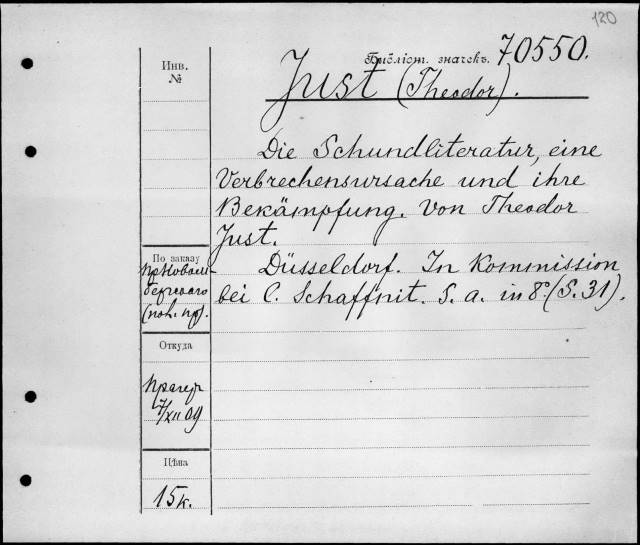 120
Библіот. значекъ. 70550.
Инв.
№
Just (Theodor).
Die Schundliteratur, eine
Verbrechensursache und ihre
Bekämpfung. Von Theodor
Just.
Düsseldorf. In Kommission
bei C. Schaffnit. S. a. in 8°. (S. 31).
По заказу
(пос. пр).
Откуда
Прагеръ
7/XII 09
Цѣна
15к.